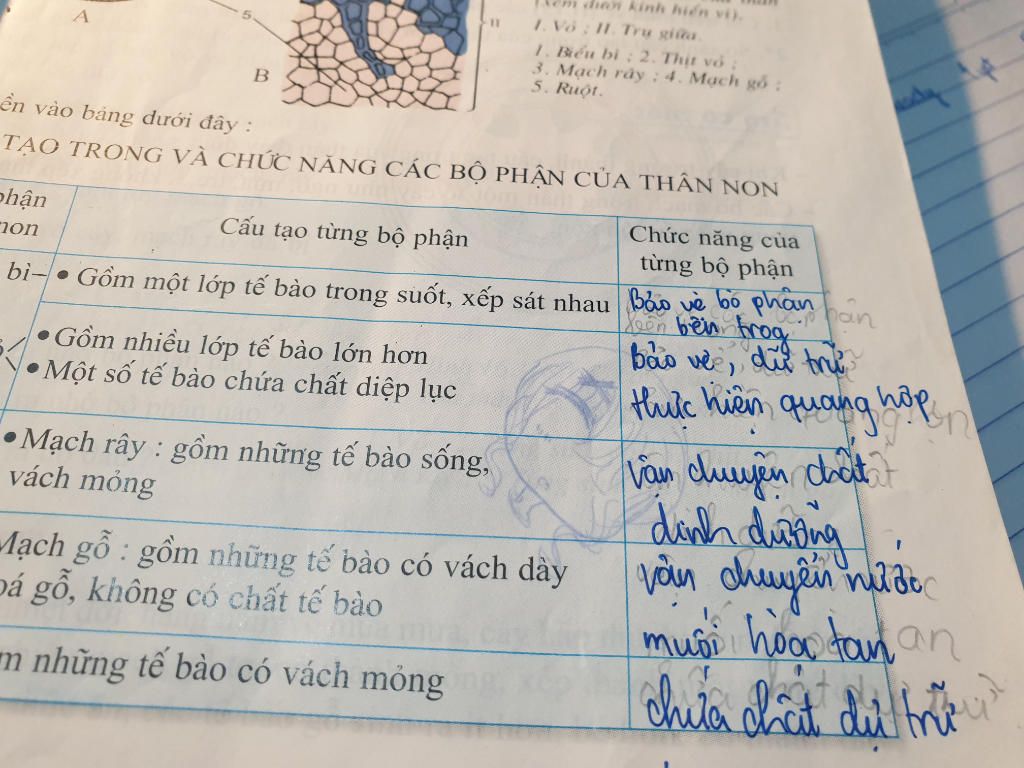 (Xem dưới kính hiển vi).
A
5
II
I. Vỏ ; II. Trụ giữa.
1. Biểu bì ; 2. Thịt vỏ ;
B
3. Mạch rây ; 4. Mạch gỗ ;
5. Ruột.
ền vào bảng dưới đây :
TẠO TRONG VÀ CHỨC NĂNG CÁC BỘ PHẬN CỦA THÂN NON
phận
non
Cấu tạo từng bộ phận
Chức năng của
từng bộ phận
bì
• Gồm một lớp tế bào trong suốt, xếp sát nhau
Bảo vệ bộ phận
bên trog
• Gồm nhiều lớp tế bào lớn hơn
• Một số tế bào chứa chất diệp lục
Bảo vệ, dữ trữ
thực hiện quang hợp
• Mạch rây : gồm những tế bào sống,
vách mỏng
vận chuyện chất
dinh dưỡng
Mạch gỗ : gồm những tế bào có vách dày
oá gỗ, không có chất tế bào
vận chuyển nước
muối hòa tan
m những tế bào có vách mỏng
chứa chất dự trữ